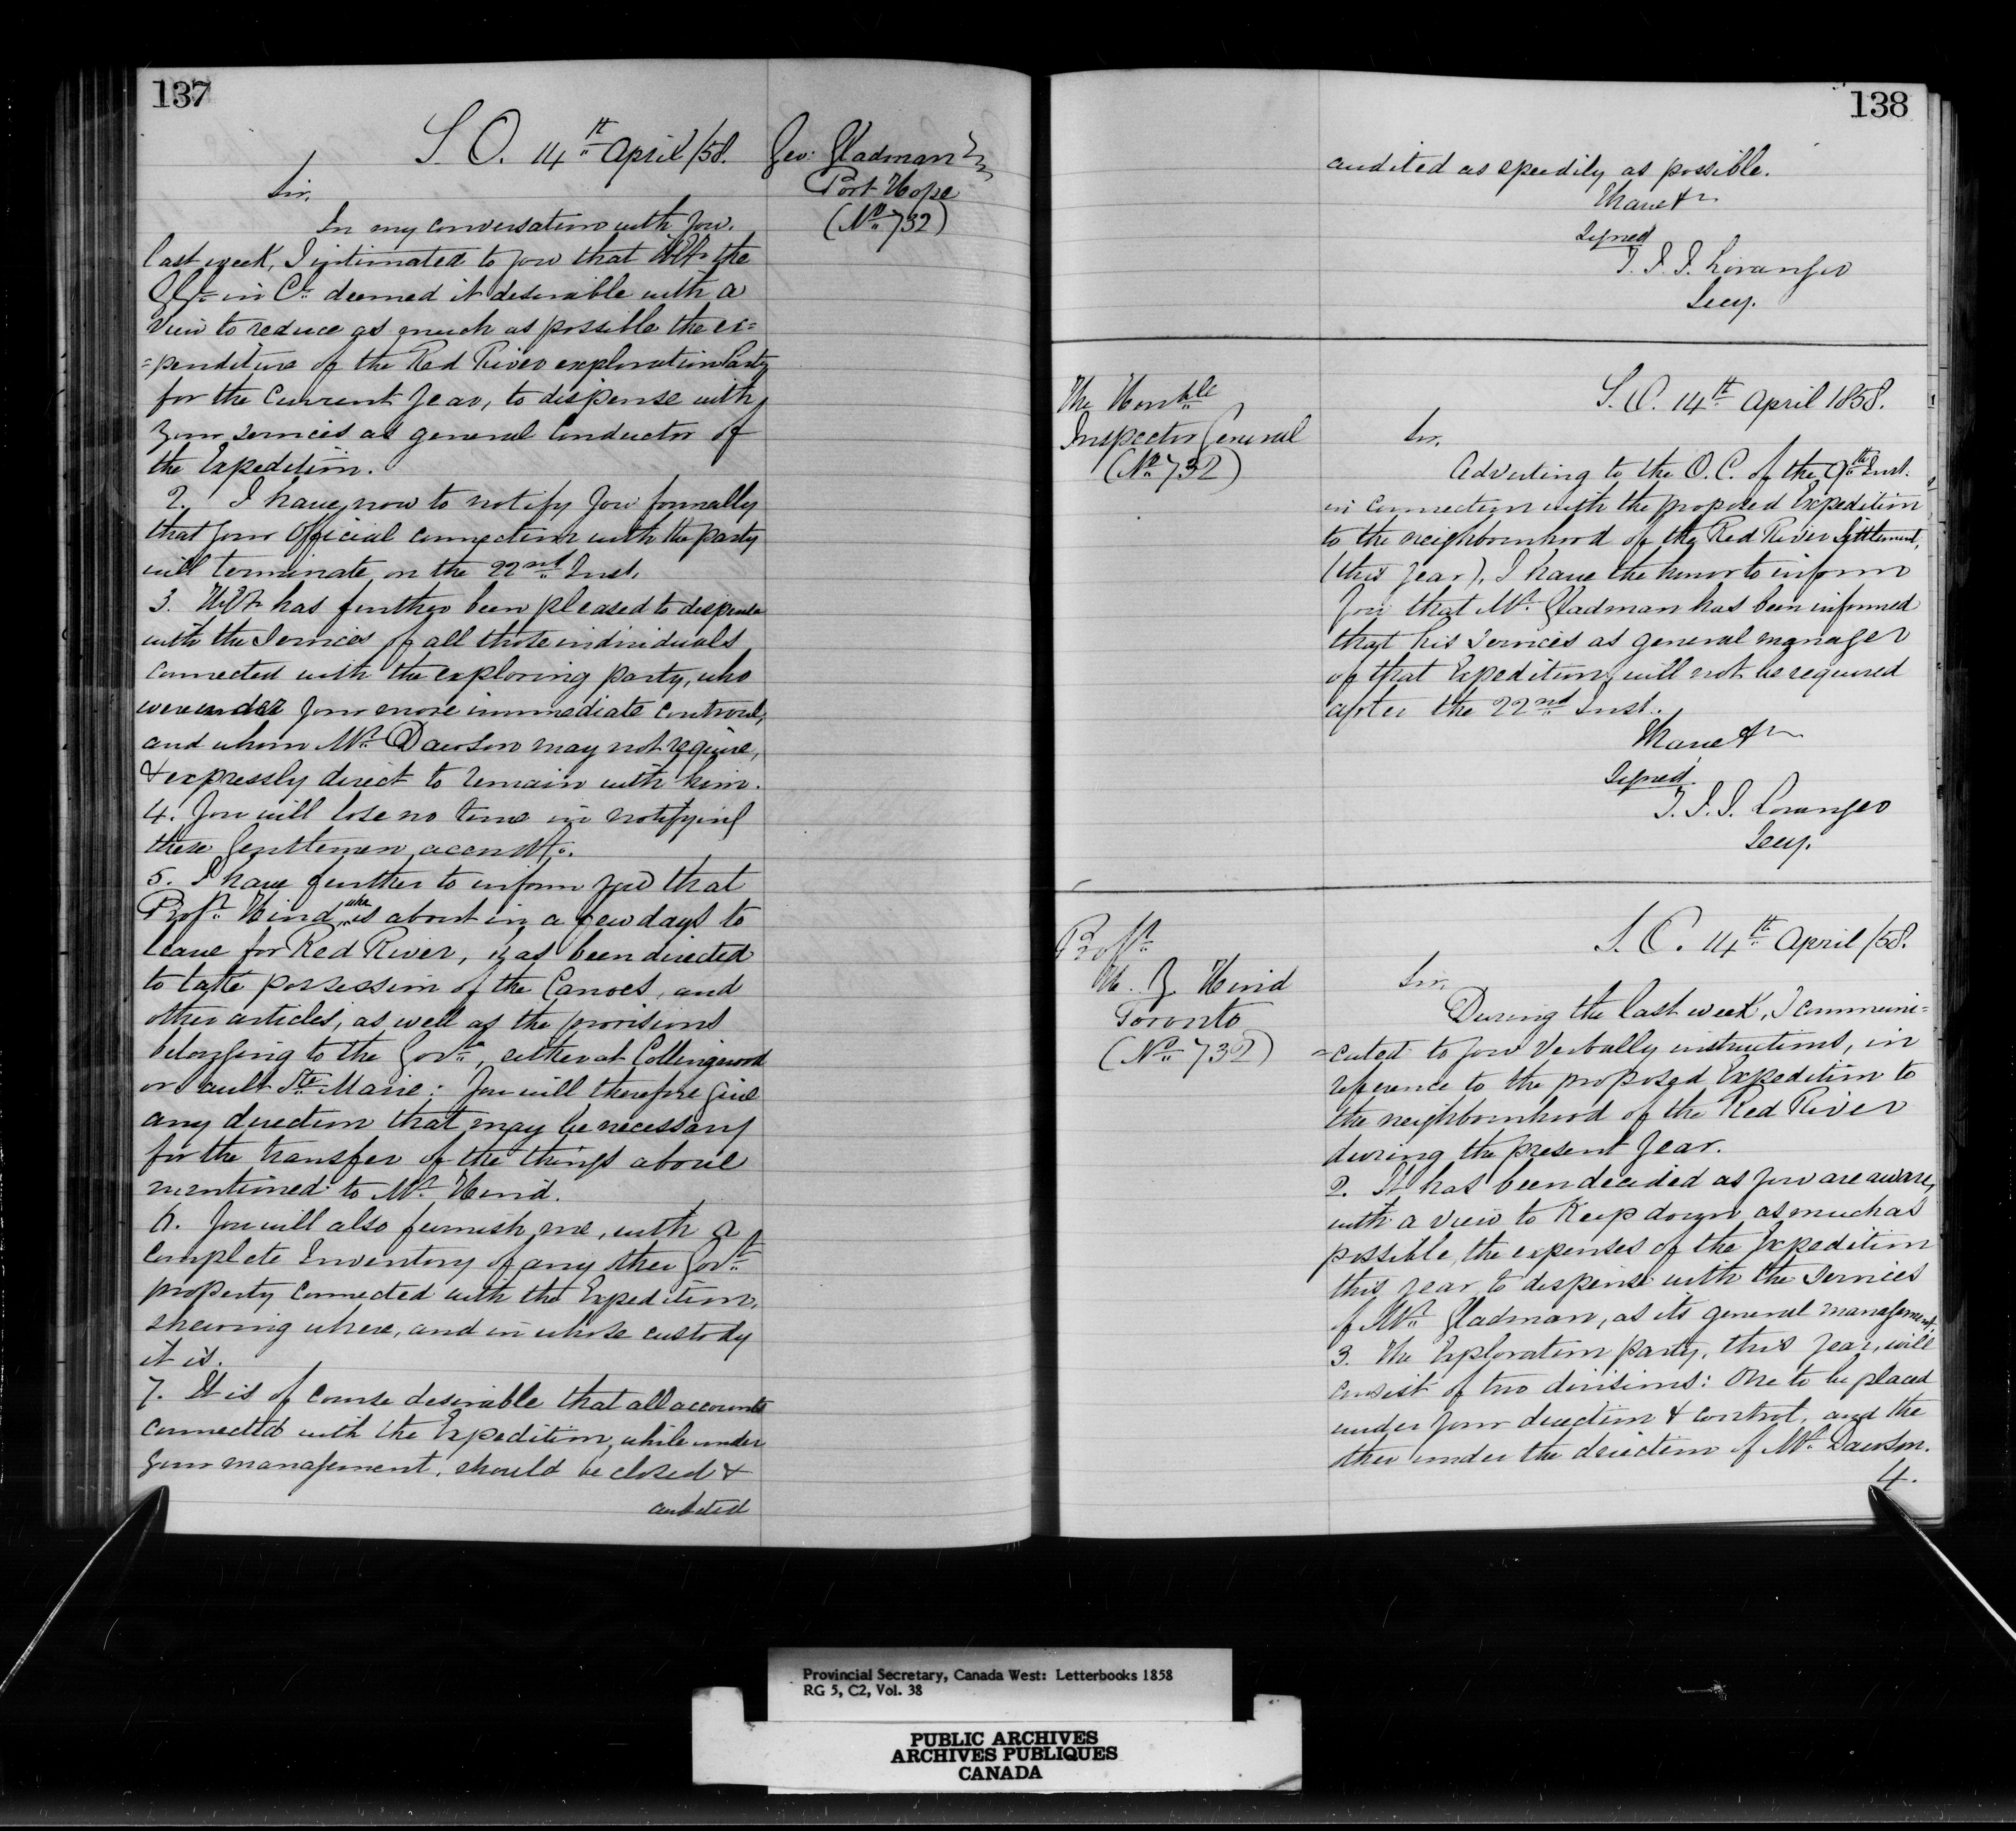 137
S. O. 14th April /58.
Geo: Gladman Esq
Port Hope
(No 732)
Sir,
In my conversation with you
last week, I intimated to you that H.E. the
G.G. in C. deemed it desirable with a
view to reduce as much as possible the ex=
=penditure of the Red River exploration Party
for the Current Year, to dispense with
your services as general Conductor of
the Expedition.
2. I have now to notify you formally
that your Official connection with the party
will terminate on the 22nd Inst.
3. H.E. has further been pleased to dispense
with the Services of all those individuals
connected with the exploring party, who
were under your more immediate controul,
and whom Mr Dawson may not require,
& expressly direct to remain with him.
4. You will lose no time in notifying
these Gentlemen
5. I have further to inform you that
Profr Hind, who is about in a few days to
leave for Red River, has been directed
to take possession of the Canoes, and
other articles, as well as the provisions
belonging to the Govt, either at Collingwood
or Sault Ste Marie: You will therefore give
any direction that may be necessary
for the transfer of the things above
mentioned to Mr Hind.
6. You will also furnish me, with a
complete Inventory of any other Govt
property connected with the Expedition,
shewing where, and in whose custody
it is.
7. It is of course desirable that all accounts
connected with the Expedition, while under
your management, should be closed &
audited
138
audited as speedily as possible.
I have &c
Signed
T. J. J. Loranger
Secy.
The Honble
Inspector General
(No 732)
S. O. 14th April 1858.
Sir,
Adverting to the O. C. of the 9th Inst.
in connection with the proposed Expedition
to the neighbourhood of the Red River Settlement,
(this year), I have the honor to inform
you that Mr Gladman has been informed
that his services as general manager
of that Expedition, will not be required
after the 22nd Inst.
I have &c
Signed.
T. J. J. Loranger
Secy.
Profr
H. Y. Hind
Toronto
(No 732)
S. O. 14th April /58.
Sir,
During the last week, I communi=
=cated to you Verbally instructions, in
reference to the proposed Expedition to
the neighbourhood of the Red River
during the present year.
2. It has been decided as you are aware,
with a view to Keep down as much as
possible, the expenses of the Expedition
this year to dispense with the Services
of Mr Gladman, as its general management.
3. The Exploration party, this year, will
consist of two divisions: One to be placed
under your direction & control, and the
other under the direction of Mr Dawson.
4.
Provincial Secretary, Canada West: Letterbooks 1858
RG 5, C2, Vol. 38
PUBLIC ARCHIVES
ARCHIVES PUBLIQUES
CANADA